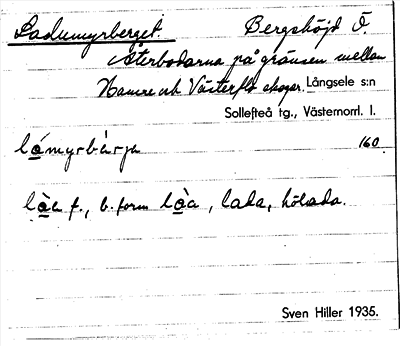 Ladumyrberget Bergshöjd Ö.
Återbodarna på gränsen mellan
Hamre och Västerflo skogar. Långsele s:n
Sollefteå tg., Västernorrl. l.
lo̲myrbàrje 160
lò̲a f., b. form lò̲a, lada, hölada.
Sven Hiller 1935.